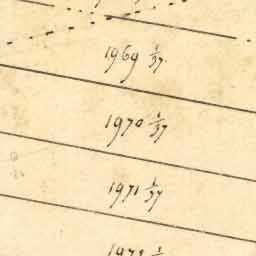 1969 1/37
1970 1/37
1971 1/37